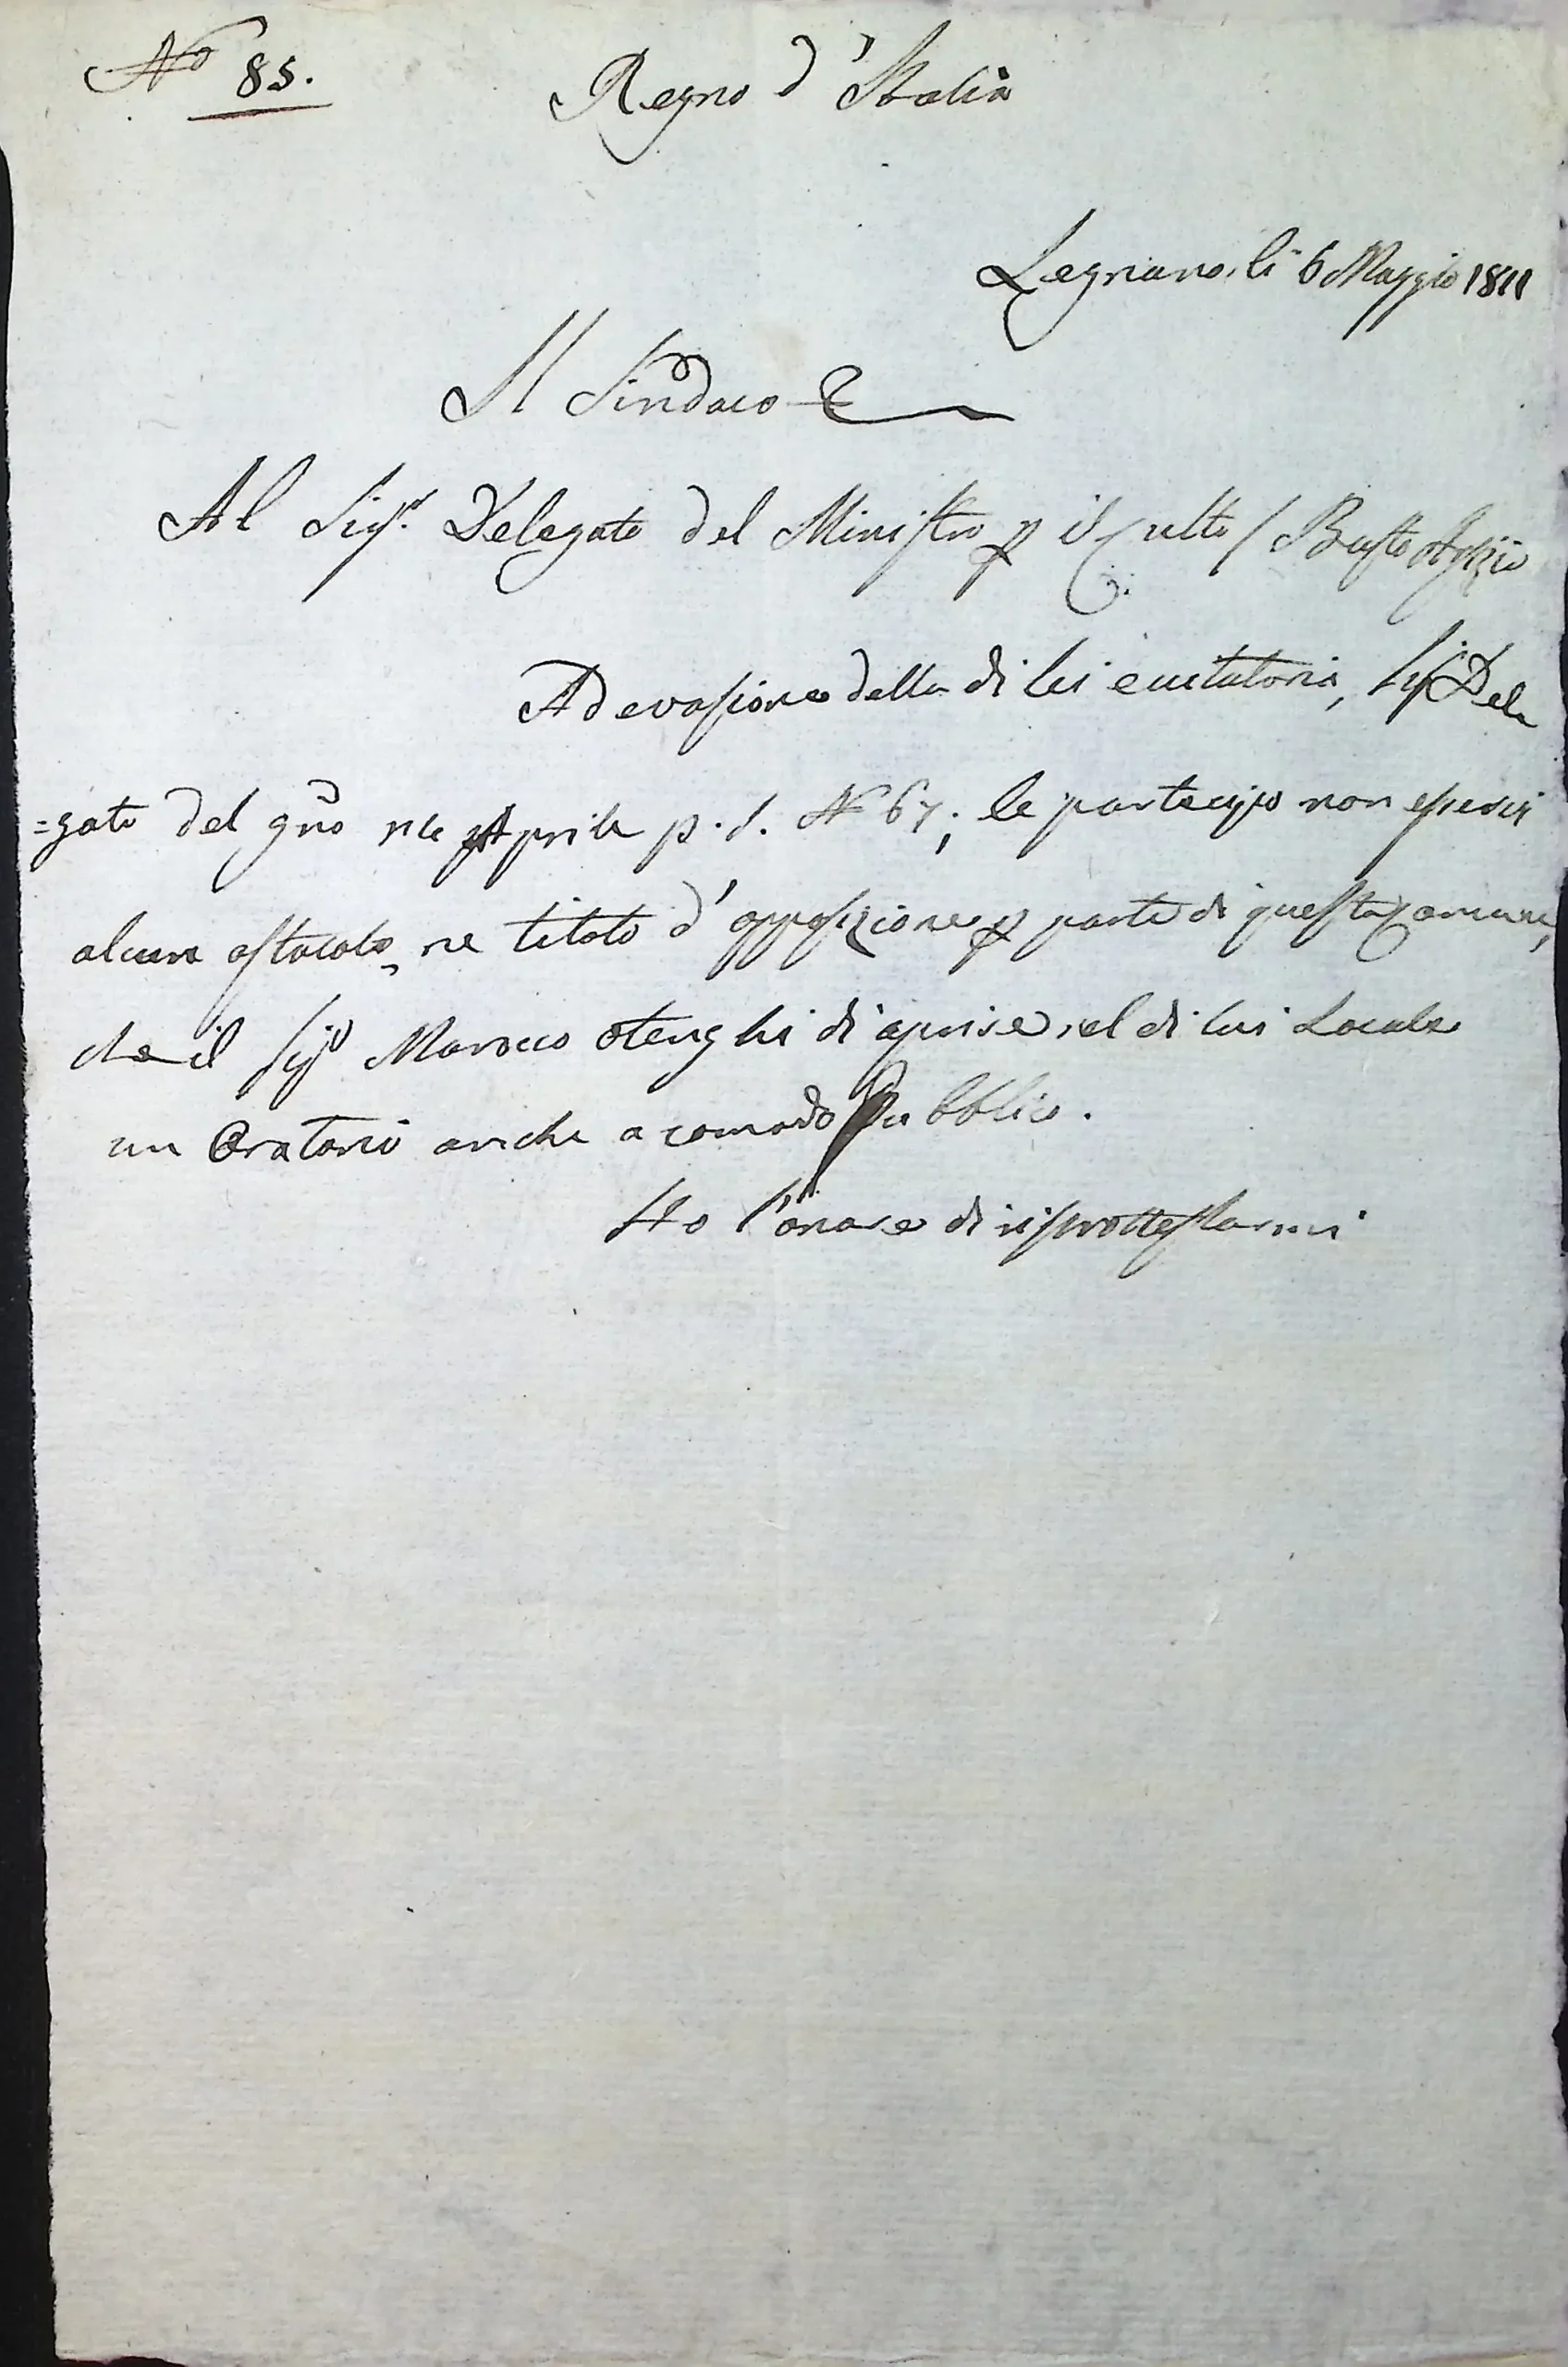 N.o 85.
Regno d'Italia
Legnano, li 6 Maggio 1811
Il Sindaco
Al Sig.r Delegato del Ministro p il Culto / Busto
Ad evasione della di lei eccitatoria, Sig Dele
=gato del gno Aprile p. s. N 67; le partecipo non esservi
alcun ostacolo, ne titolo d'opposizione p parte di questa Comune,
che il Sig.r Marocco ottenghi di aprire nel di lui Locale
un Oratorio anche a comodo Pubblico.
Ho l'onore di riprottestarmi